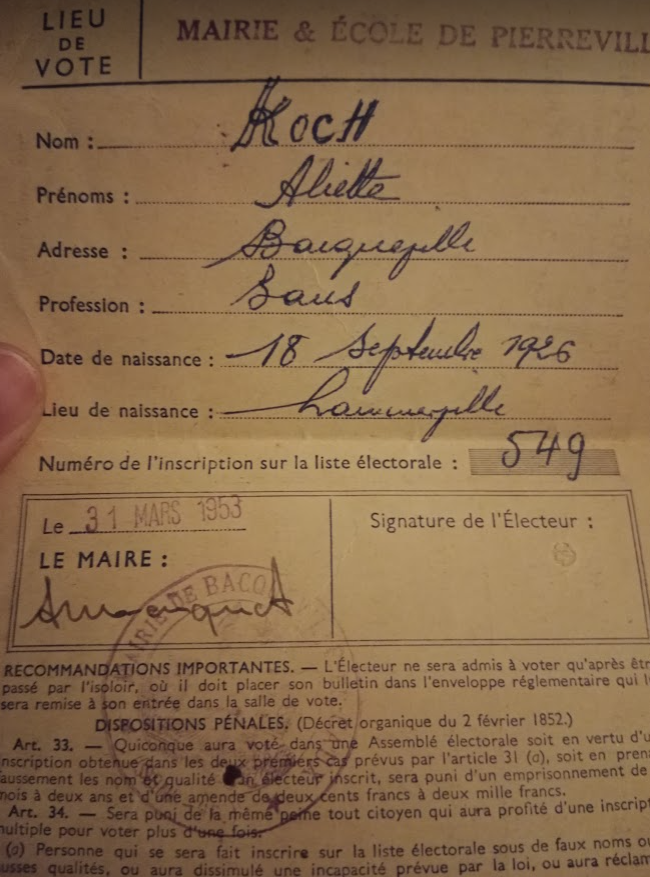 LIEU
DE
VOTE
MAIRIE & ÉCOLE DE PIERREVILL
Nom : KOCH
Prénoms : Aliette
Adresse : Bacqueville
Profession : Sans
Date de naissance : 18 Septembre 1926
Lieu de naissance : Lammerville
Numéro de l'inscription sur la liste électorale : 549
Le 31 MARS 1953
Signature de l'Électeur :
LE MAIRE :
MAIRIE DE BACQ
RECOMMANDATIONS IMPORTANTES. — L'Électeur ne sera admis à voter qu'après êtr
passé par l'isoloir, où il doit placer son bulletin dans l'enveloppe réglementaire qui l
sera remise à son entrée dans la salle de vote.
DISPOSITIONS PÉNALES. (Décret organique du 2 février 1852.)
Art. 33. — Quiconque aura voté dans une Assemblé électorale soit en vertu d'u
inscription obtenue dans les deux premiers cas prévus par l'article 31 (a), soit en prena
aussement les nom et qualité d'un électeur inscrit, sera puni d'un emprisonnement de
mois à deux ans et d'une amende de deux cents francs à deux mille francs.
Art. 34. — Sera puni de la même peine tout citoyen qui aura profité d'une inscript
multiple pour voter plus d'une fois.
(a) Personne qui se sera fait inscrire sur la liste électorale sous de faux noms ou
usses qualités, ou aura dissimulé une incapacité prévue par la loi, ou aura réclam